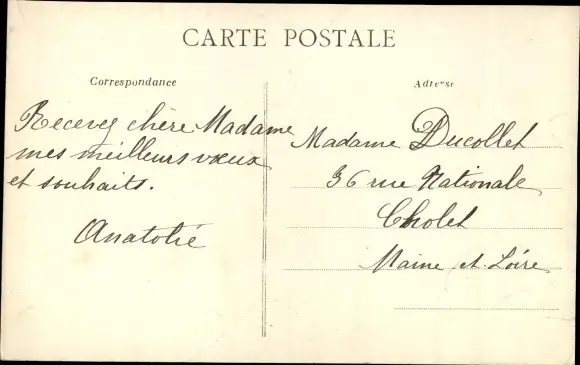 CARTE POSTALE
Correspondance
Adresse
Recevez chère Madame
mes meilleurs vœux
et souhaits.
Anatolie
Madame Ducollet
36 rue Nationale
Cholet
Maine et Loire